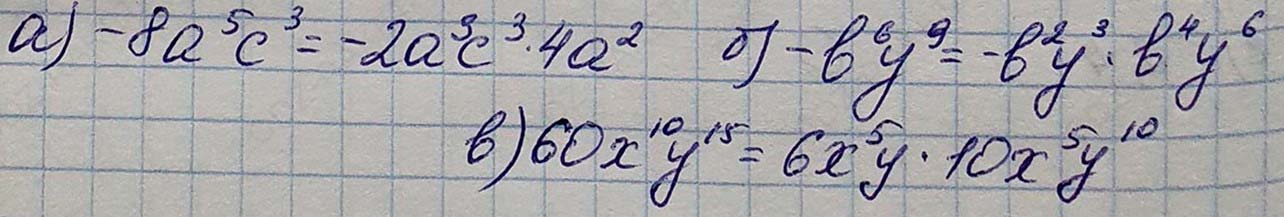 а) -8a⁵c³ = -2a³c³ · 4a² б) -b⁶y⁹ = -b²y³ · b⁴y⁶
в) 60x¹⁰y¹⁵ = 6x⁵y · 10x⁵y¹⁰